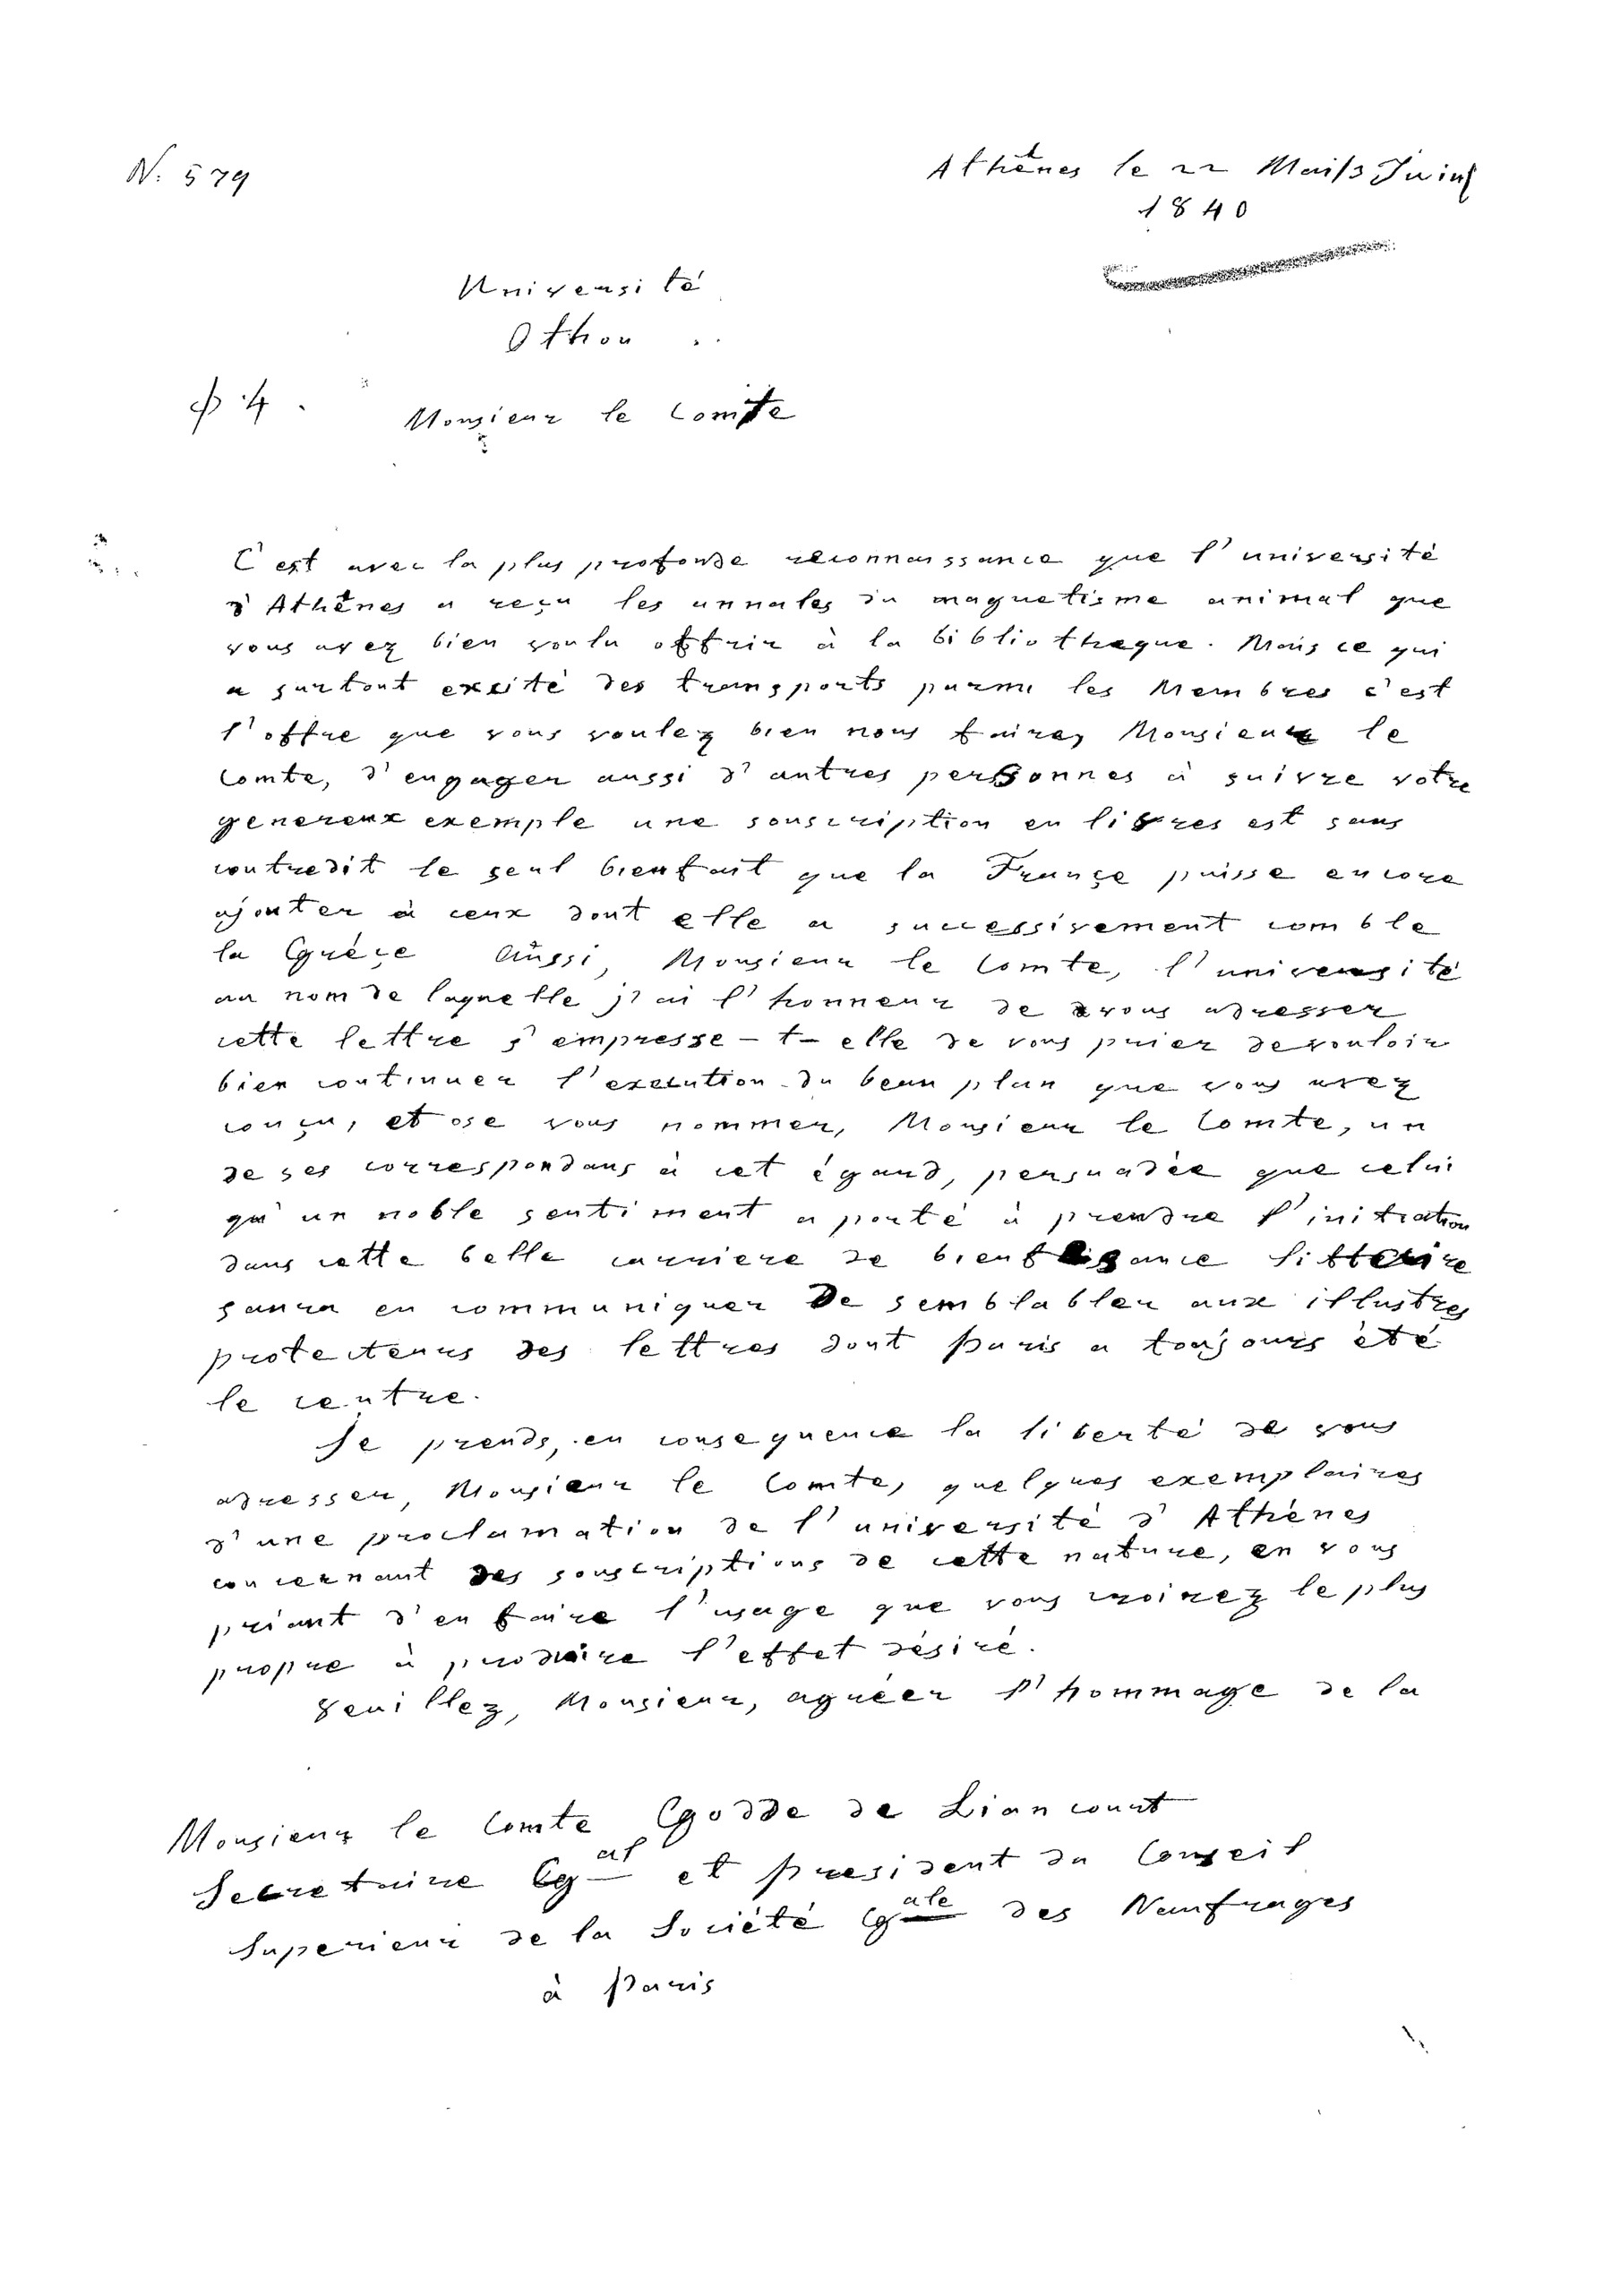 N. 579
Athènes le 22 Mai/3 Juin
1840
Université
Othon
φ 4.
Monsieur le Comte
C'est avec la plus profonde reconnaissance que l'université
d'Athènes a reçu les annales du magnetisme animal que
vous avez bien voulu offrir à la bibliotheque. Mais ce qui
a surtout excité des transports parmi les Membres c'est
l'offre que vous voulez bien nous faire, Monsieur le
Comte, d'engager aussi d'autres personnes à suivre votre
genereux exemple une souscription en livres est sans
contredit le seul bienfait que la Françe puisse encore
ajouter à ceux dont elle a successivement comble
la Grèçe Aussi, Monsieur le Comte, l'université
au nom de laquelle j'ai l'honneur de vous adresser
cette lettre s'empresse-t-elle de vous prier de vouloir
bien continuer l'execution du beau plan que vous avez
conçu, et ose vous nommer, Monsieur le Comte, un
de ses correspondans à cet égard, persuadée que celui
qu'un noble sentiment a porté à prendre l'initiation
dans cette belle carriere de bienfaisance litteraire
saura en communiquer de semblabler aux illustres
protecteurs des lettres dont Paris a toujours été
le centre.
Je prends, en consequence la liberté de vous
adresser, Monsieur le Comte, quelques exemplaires
d'une proclamation de l'université d'Athènes
concernant des souscriptions de cette nature, en vous
priant d'en faire l'usage que vous croirez le plus
propre à produire l'effet désiré.
Veuillez, Monsieur, agréer l'hommage de la
Monsieur le Comte Godde de Liancourt
Secretaire Gal et president du Conseil
Superieur de la Société Gale des Naufrages
à Paris